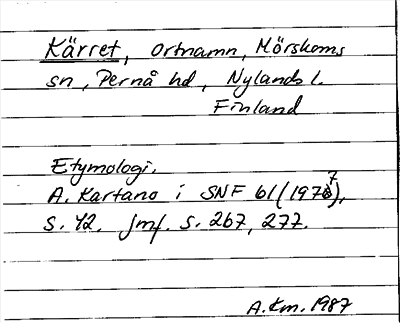 Kärret, ortnamn, Mörskoms
sn, Pernå hd, Nylands l.
Finland
Etymologi.
A. Kartano i SNF 61 (1977),
s. 42. Jmf. s. 267, 277.
A.Km. 1987